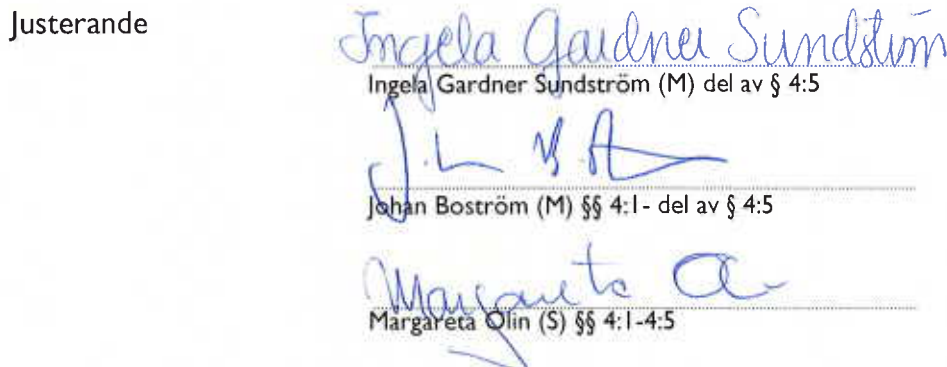 Justerande
Ingela Gardner Sundström
Ingela Gardner Sundström (M) del av § 4:5
Johan Boström (M) §§ 4:1- del av § 4:5
Margareta
Margareta Olin (S) §§ 4:1-4:5